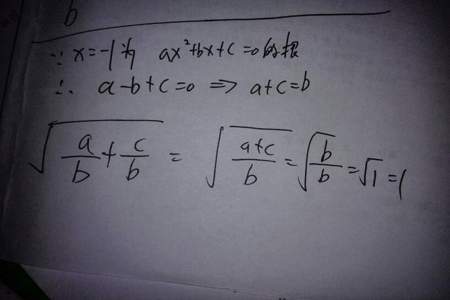 b
∵ x=-1为 ax²+bx+c=0的根
∴ a-b+c=0 ⇒ a+c=b
√(a/b + c/b) = √((a+c)/b) = √(b/b) = √1 = 1